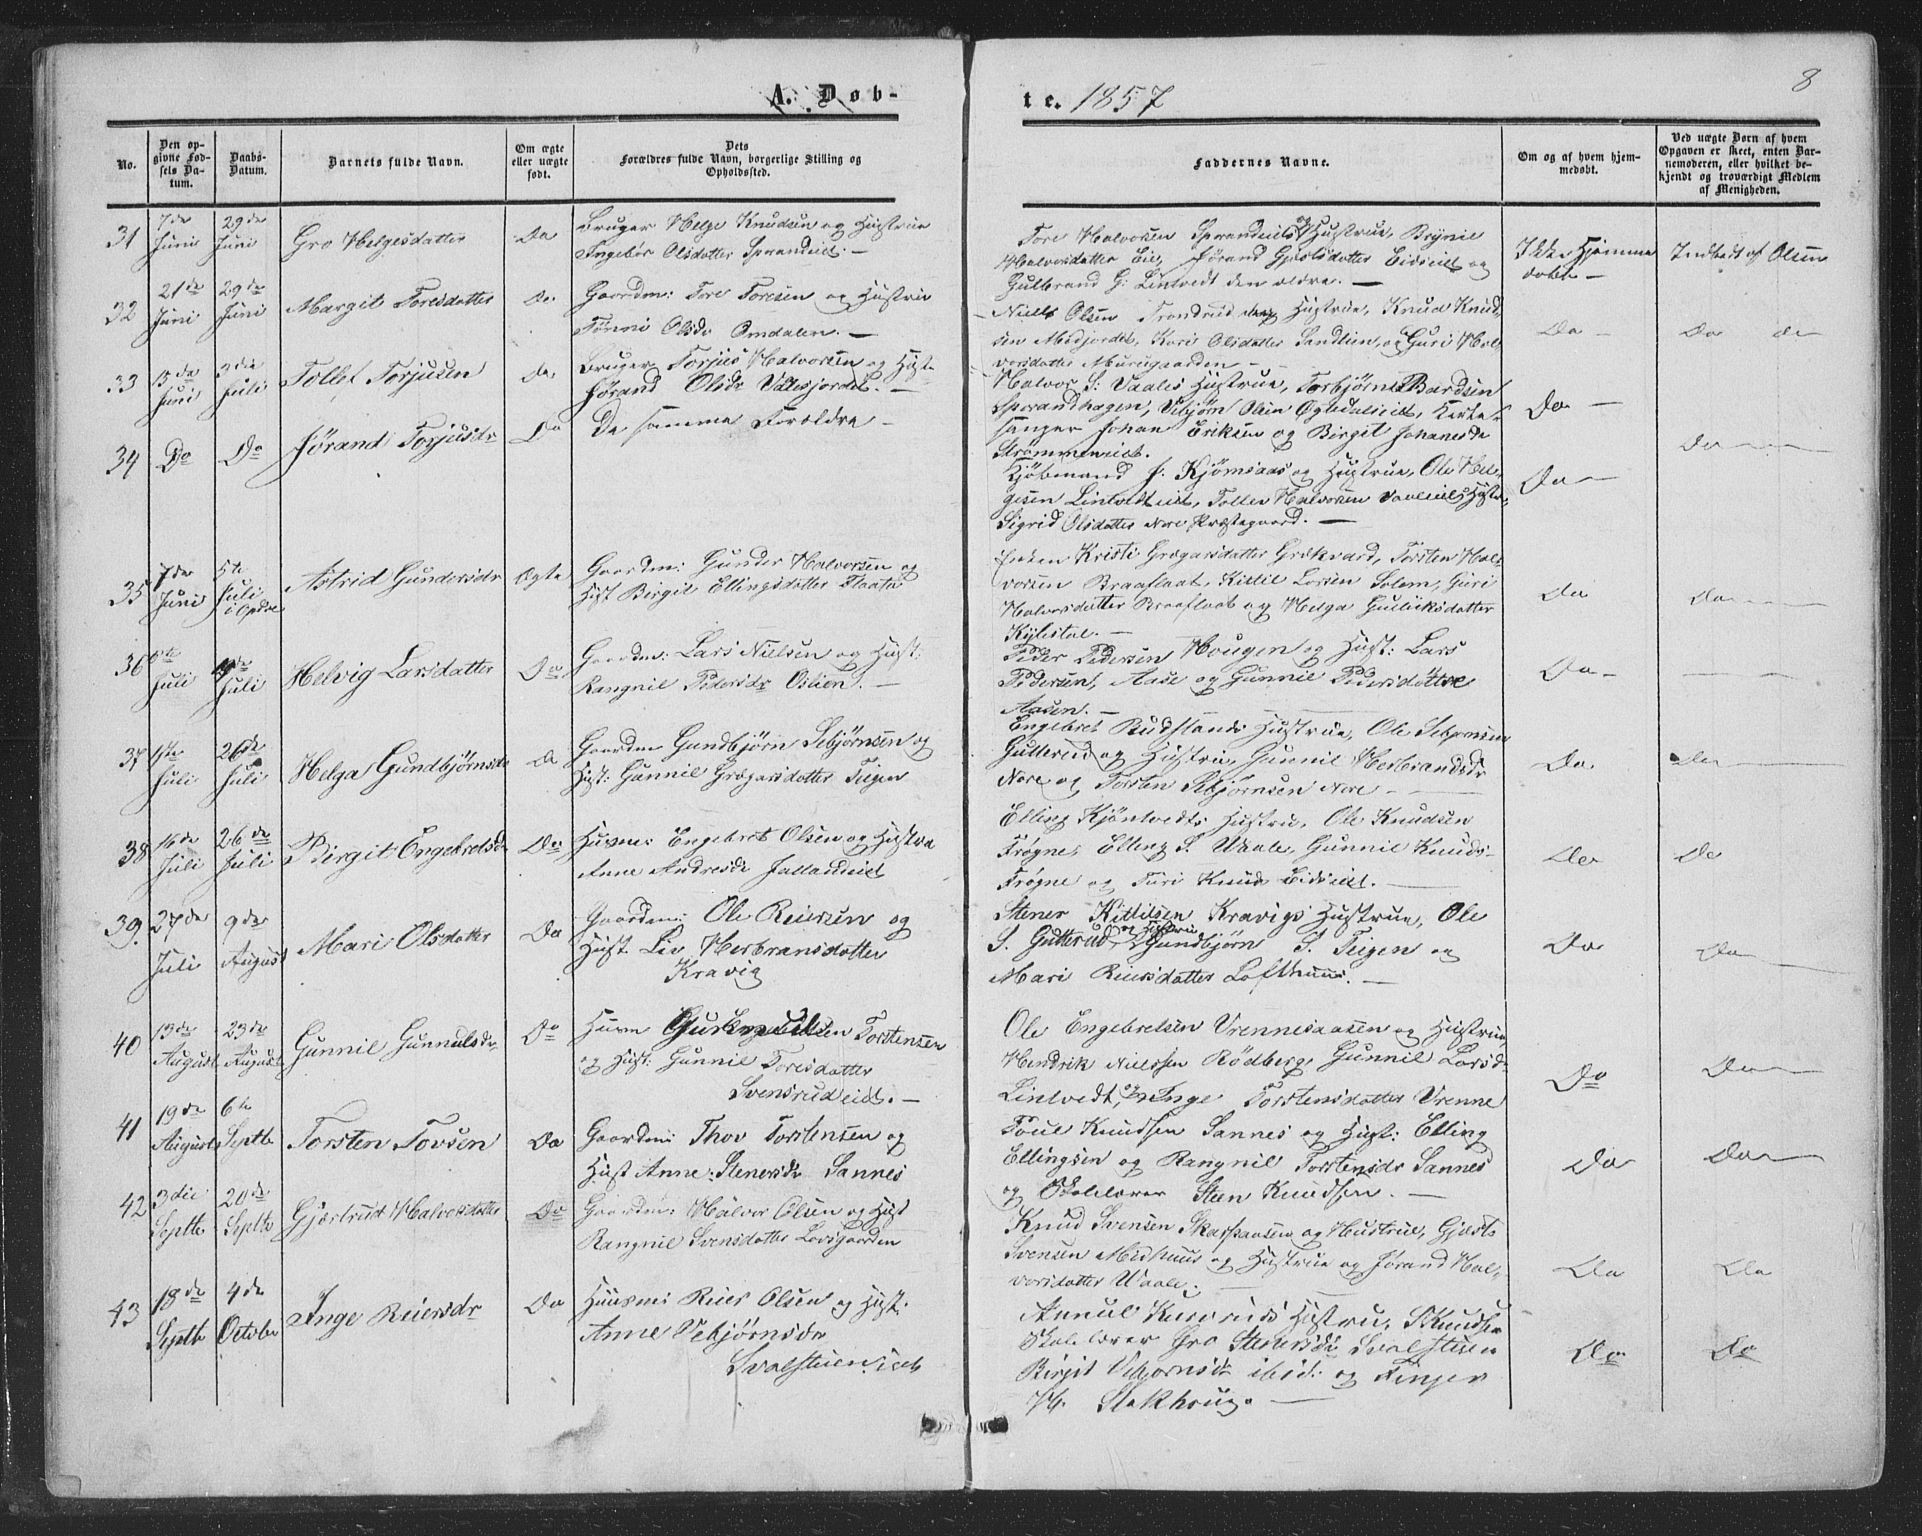 8
A. Døb-
te. 1857
No.
Den op-
givne Fød-
sels Da-
tum.
Daabs-
Datum.
Barnets fulde Navn.
Om ægte
eller uægte
født.
Dets
Forældres fulde Navn, borgerlige Stilling og
Opholdssted.
Faddernes Navne.
Om og af hvem hjem-
medøbt.
Ved uægte Børn af hvem
Opgaven er skeet, enten Bar-
nemoderen, eller hvilket be-
kjendt og troværdigt Medlem
af Menigheden.
31 7de Juni 29de Juni Gro Helgesdatter Do
Bruger Helge Knudsen og Hustrue
Ingebor Olsdatter Sporandeiet. —
Tore Halvorsen Sporandeiets og Hustrue, Brynil
Halvorsdatter Eie, Jørand Gjulsdatter Eidseiet og
Gulbrand G: Lintvedt den ældre. —
Ikke Hjemme
døbt —
Indbedt af Olsen
32 21de Juni 29de Juni Margit Toresdatter Do.
Gaardm: Tore Toresen og Hustrue
Tønni Olsdr Omdalen. —
Niels Olsen Trondrud Hustrue, Knud Knud-
sen Midjordet, Kari Olsdatter Sandlien, og Guri Hal-
vorsdatter Muriigaarden —
Do —
Do do
33 13de Juni 3die Juli Tollef Torjusen do.
Bruger Torjus Halvorsen og Hust.
Jørand Olsdr Vallesjordet. —
Halvor S: Vaales Hustrue, Torbjørn Bardsen
Sporandhagen, Vebjørn Olsen Ligledalseiet, Kirke-
sanger Johan Eriksen og Birgit Johanesda
Strømmeneiet.
Do —
34 Do Do Jørand Torjusdr Do
De samme Forældre —
Kjøbmand J: Kjømsaas og Hustrue, Ole Hel-
gesen Lintvedteiet, Tollev Halvorsen Vaaleiets Hustr.,
Sigrid Olsdatter Nore Præstegaard. —
Do —
Do —
35 7de Juni 5te Juli i Opdal Astrid Gundersdr Ægte
Gaardm: Gunder Halvorsen og
Hust Birgit Ellingsdatter Flaata
Enken Kristi Gregarsdatter Grækvard, Torsten Hal-
vorsen Braaflaat, Kittil Larsen Solem, Guri
Halvorsdatter Braaflaat og Helga Gulliksdatter
Kjilestal. —
Do
Do —
36 5te Juli Juli Helvig Larsdatter Do
Gaardm: Lars Nielsen og Hust:
Rangnil Pedersdr Oslien. —
Peder Pedersen Hougen og Hust: Lars
Pedersen, Aase og Gunnil Pedersdatter
Aasen. —
Do —
37 Juli 26de Juli Helga Gundbjørnsdr Do
Gaardm Gundbjørn Sebjørnsen og
Hust: Gunnil Gregarsdatter Teigen
Engebret Rudslands Hustrue, Ole Sebjørnsen
Gutterud og Hustru, Gunnil Herbrandsdr
Nore og Torsten Sebjørnsen Nore —
Do.
Do —
38 16de Juli 26de Juli Birgit Engebretsd Do
Husm: Engebret Olsen og Hustru
Anne Andresdr Jallandeiet
Elling Kjøntvedts Hustru, Ole Knudsen
Frøgne, Elling S. Waale, Gunnil Knuds-
Frøgne og Turi Knuds Eidseiet. —
Do
Do
39. 27de Juli 9de August Mari Olsdatter Do
Gaardm: Ole Reiersen og
Hust. Liv Herbransdatter
Kravig
Stener Kittilsen Kravigs Hustrue, Ole
S. Gutterud og Hustru, Gundbjørn S. Teigen og
Mari Reiersdatter Lofthuus. —
Do
Do —
40 13de August 23de August Gunnil Gunnulsdr Do
Husm Torstensen
og Hust: Gunnil Toresdatter
Svensrudeiet. —
Ole Engebretsen Vrennesaasen og Hustrue
Hendrik Nielssen Rødberg, Gunnil Larsd
Lintvedt, og Inge Torstensdatter Vrenne
Do
Do —
41 19de August 6te Septb Torsten Tovsen Do
Gaardm: Thov Torstensen og
Hust Anne Stenersdr Sannes
Poul Knudsen Sannes og Hust: Elling
Ellingsen og Rangnil Torstensdr Sannes
og Skolelærer Steen Knudsen. —
Do
Do —
42 3die Septb 20de Septb Gjærtrud Halvorsdatter Do
Gaardm: Halvor Olsen og Hust
Rangnil Svensdatter Lovsgaarden
Knud Svensen Skarpaasen og Hustrue, Gjæsti
Svensen Midhuus og Hustrue og Jørand Hal-
vorsdatter Waale. —
Do
Do
43 18de Septb 4de October Inge Reiersdr Do
Huusm: Reier Olsen og Hust:
Anne Vebjørnsdr
Svalstueneiet
Annul Hustru, S Knudsen
Skolelærer Gro Stenersdr Svalstuen
Birgit Vebjørnsdr ibid: og Finger
H. Stakhaug. —
Do
Do